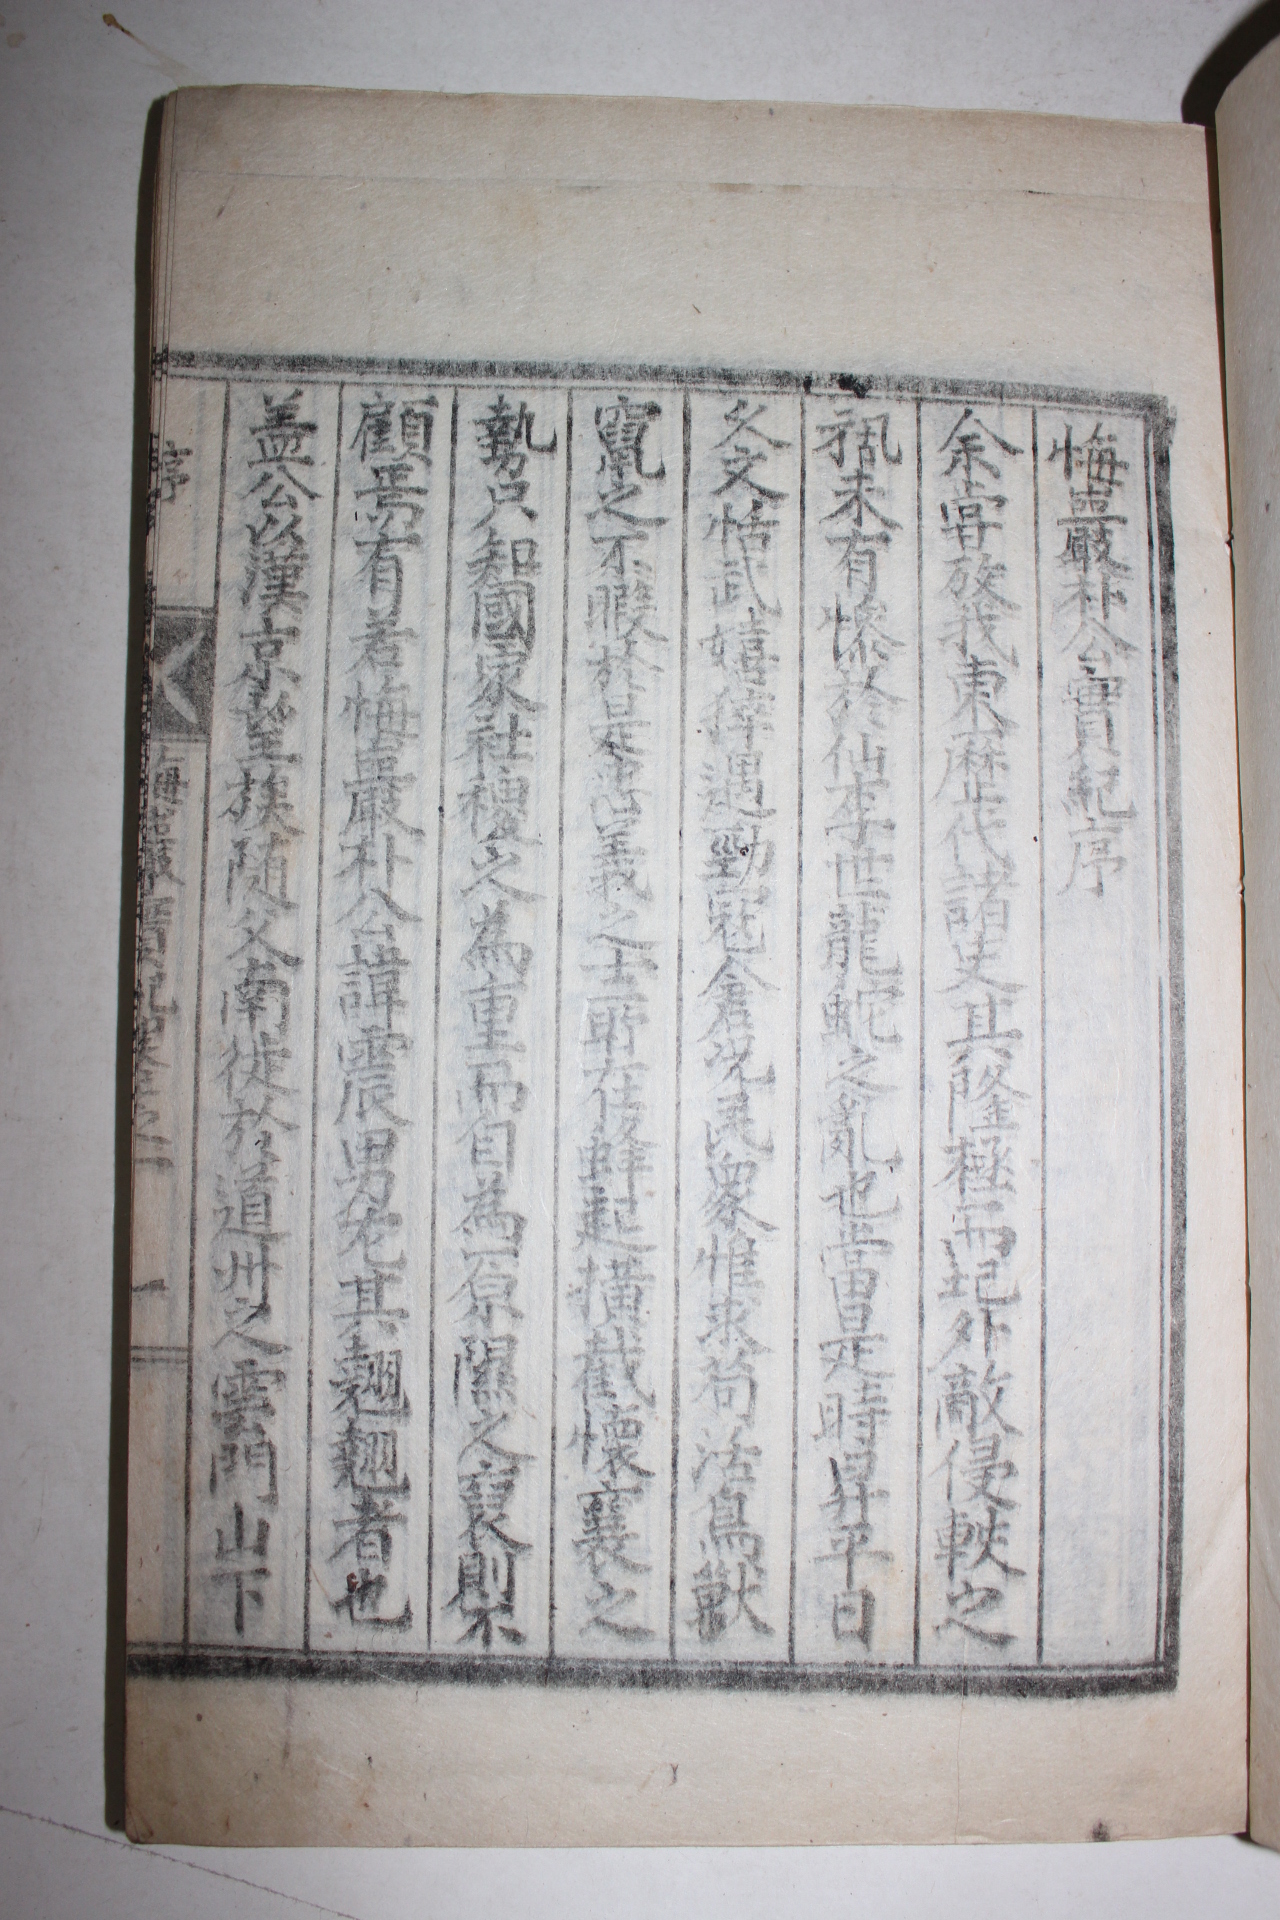 悔巖朴公實紀序
余嘗攷我東歷代諸史其隆極而圮外敵侵軼之
禍未有慘於仙李世龍蛇之亂也當是時昇平日
久文恬武嬉猝遇勁寇倉況民衆惟求苟活鳥獸
竄之不暇於是忠義之士所在蜂起擐戴懷襄之
勢只知國家社稷之爲重而自爲一家關之裏則不
顧焉有若悔巖朴公諱震男尤其翹翹者也
盖公以漢京望族隨父南徙於道州之雲門山下
序
悔巖實紀卷之一
一